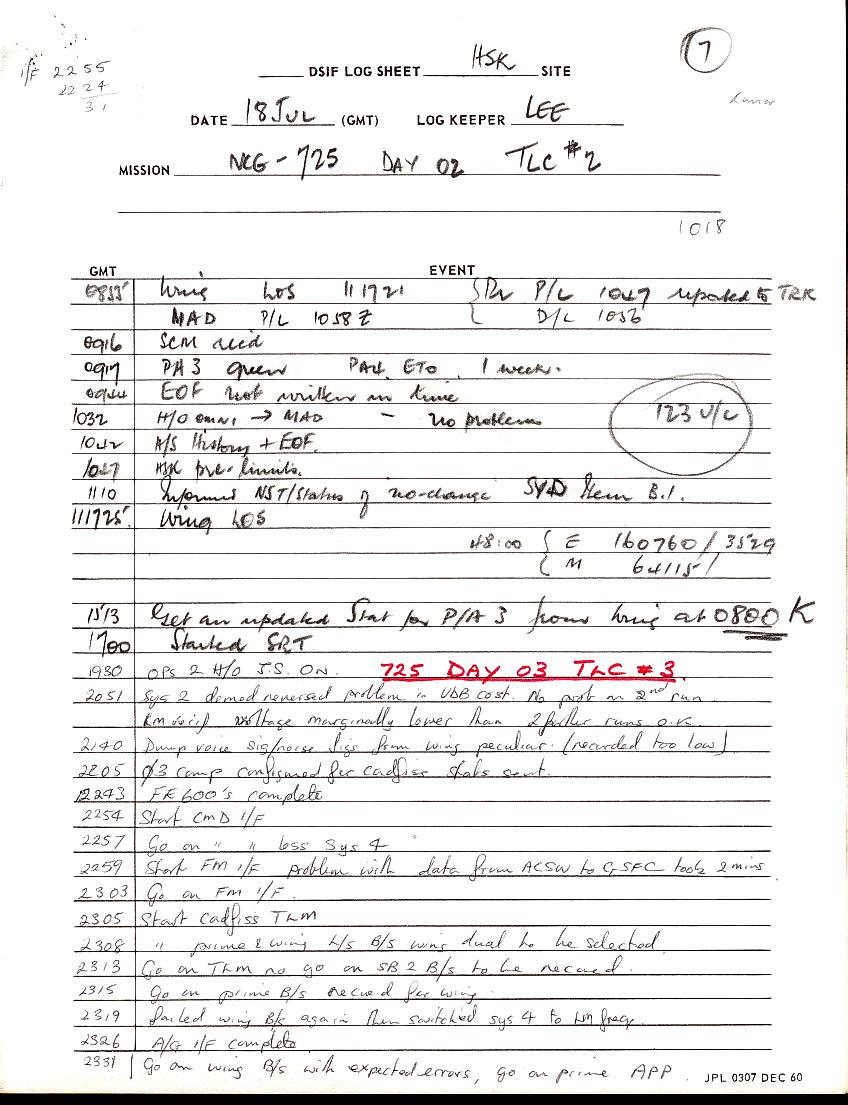 I/F 2255
2224
31
7
DSIF LOG SHEET HSK SITE
DATE 18 JUL (GMT) LOG KEEPER LEE
MISSION NCG-725 DAY 02 TLC #2
1018
GMT EVENT
0855 Wing LOS 111721 P/L 1047 reported to TRK
MAD P/L 1058 Z D/L 1056
0916 SCM
0917 PA3 green PA4 ETO 1 week.
EOF not written in time
1032 H/O OMNI → MAD - No problem
123 U/L
1042 A/S History + EOF.
HSK pre-limits.
1110 Informed NST/Status of no-change Item B.1.
111725 Wing LOS
48:00 E 160760/3529
M 64115/
1513 Get an updated Stat for P/A 3 from wing at 0800 K
1700 Started SRT
1930 OPS 2 H/O J.S. ON. 725 DAY 03 TLC #3
2051 Sys 2 demod reversed problem in UDB cost. No prob on 2nd run
voltage marginally lower than 2 further runs O.K
2140 Dump voice sig/noise from wing peculiar. (recorded too low)
2205 Ø3 comp configured for cadfiss stats sent.
2243 FR600's complete
2254 Start CMD I/F
2257 Go on " " less Sys 4
2259 Start FM I/F problem with data from ACSW to GSFC took 2 mins
2303 Go on FM I/F.
2305 Start Cadfiss TLM
2308 " prime & wing L/S B/S wing dual to be selected
2313 Go on TLM no go on SB 2 B/S to be recued.
2315 Go on prime B/S recued for wing.
2319 failed wing B/s again then switched sys 4 to LM freq.
2326 A/G I/F complete
2331 Go on wing B/S with expected errors, go on prime APP.
JPL 0307 DEC 60